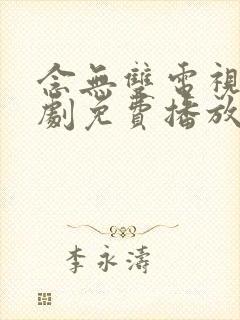 念無雙電視
劇免費播放
李永濤